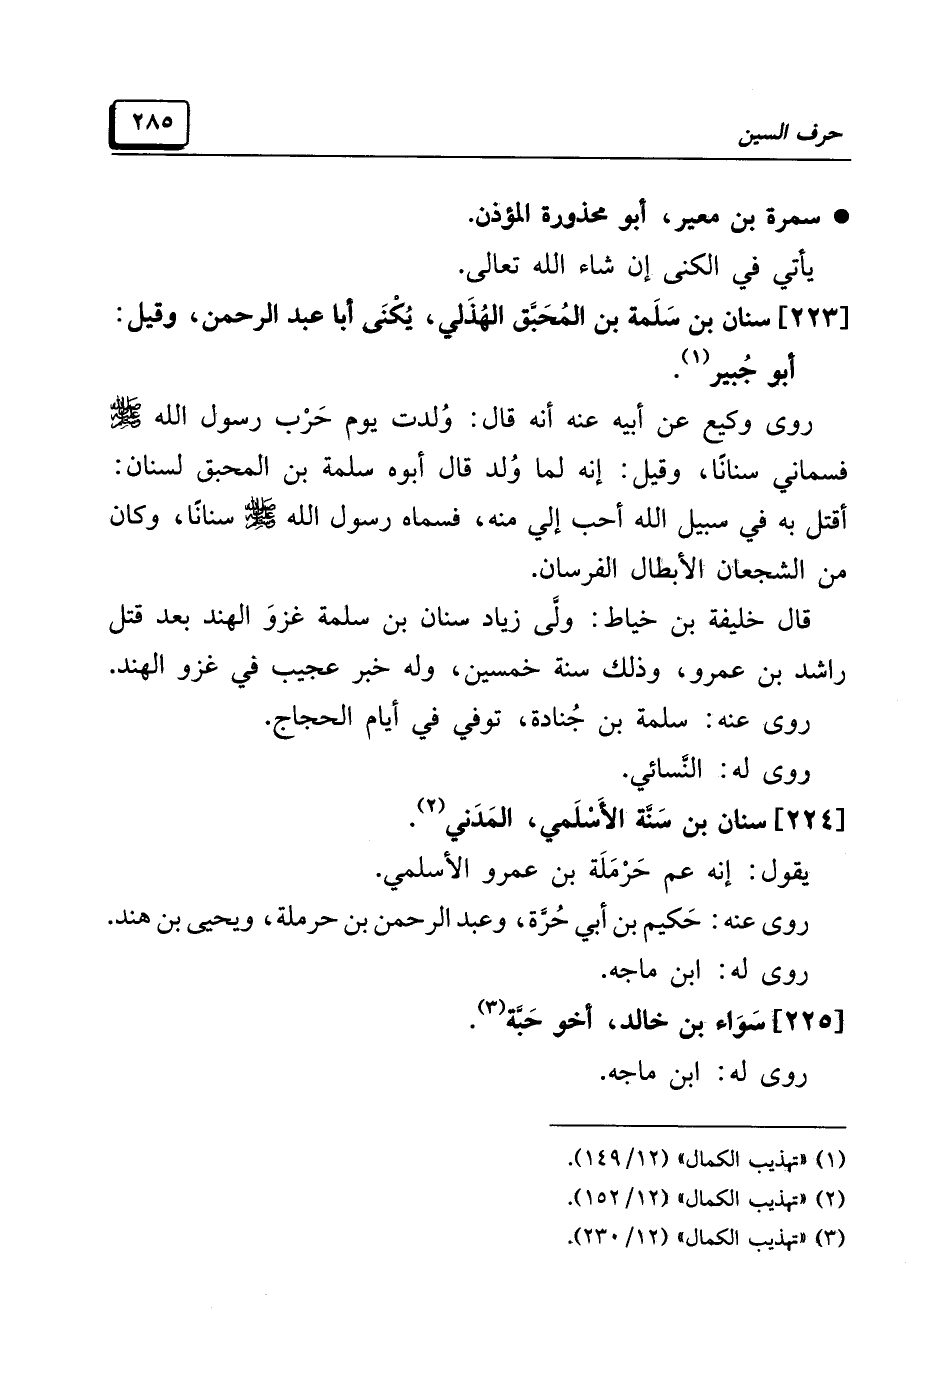 حرف السين
٢٨٥
● سمرة بن معير، أبو محذورة المؤذن.
يأتي في الكنى إن شاء الله تعالى.
[٢٢٣] سنان بن سَلَمة بن المُحَبَّق الهُذَلي، يُكْنَى أبا عبد الرحمن، وقيل:
أبو جُبير(١).
روى وكيع عن أبيه عنه أنه قال: وُلدت يوم حَرْب رسول الله ﷺ
فسماني سنانًا، وقيل: إنه لما وُلد قال أبوه سلمة بن المحبق لسنان:
أقتل به في سبيل الله أحب إلي منه، فسماه رسول الله ﷺ سنانًا، وكان
من الشجعان الأبطال الفرسان.
قال خليفة بن خياط: ولَّى زياد سنان بن سلمة غزوَ الهند بعد قتل
راشد بن عمرو، وذلك سنة خمسين، وله خبر عجيب في غزو الهند.
روى عنه: سلمة بن جُنادة، توفي في أيام الحجاج.
روى له: النَّسائي.
[٢٢٤] سنان بن سَنَّة الأَسْلَمي، المَدَني(٢).
يقول: إنه عم حَرْمَلَة بن عمرو الأسلمي.
روى عنه: حَكيم بن أبي حُرَّة، وعبد الرحمن بن حرملة، ويحيى بن هند.
روى له: ابن ماجه.
[٢٢٥] سَوَاء بن خالد، أخو حَبَّة(٣).
روى له: ابن ماجه.
(١) «تهذيب الكمال» (١٢/ ١٤٩).
(٢) «تهذيب الكمال» (١٢/ ١٥٢).
(٣) «تهذيب الكمال» (١٢/ ٢٣٠).